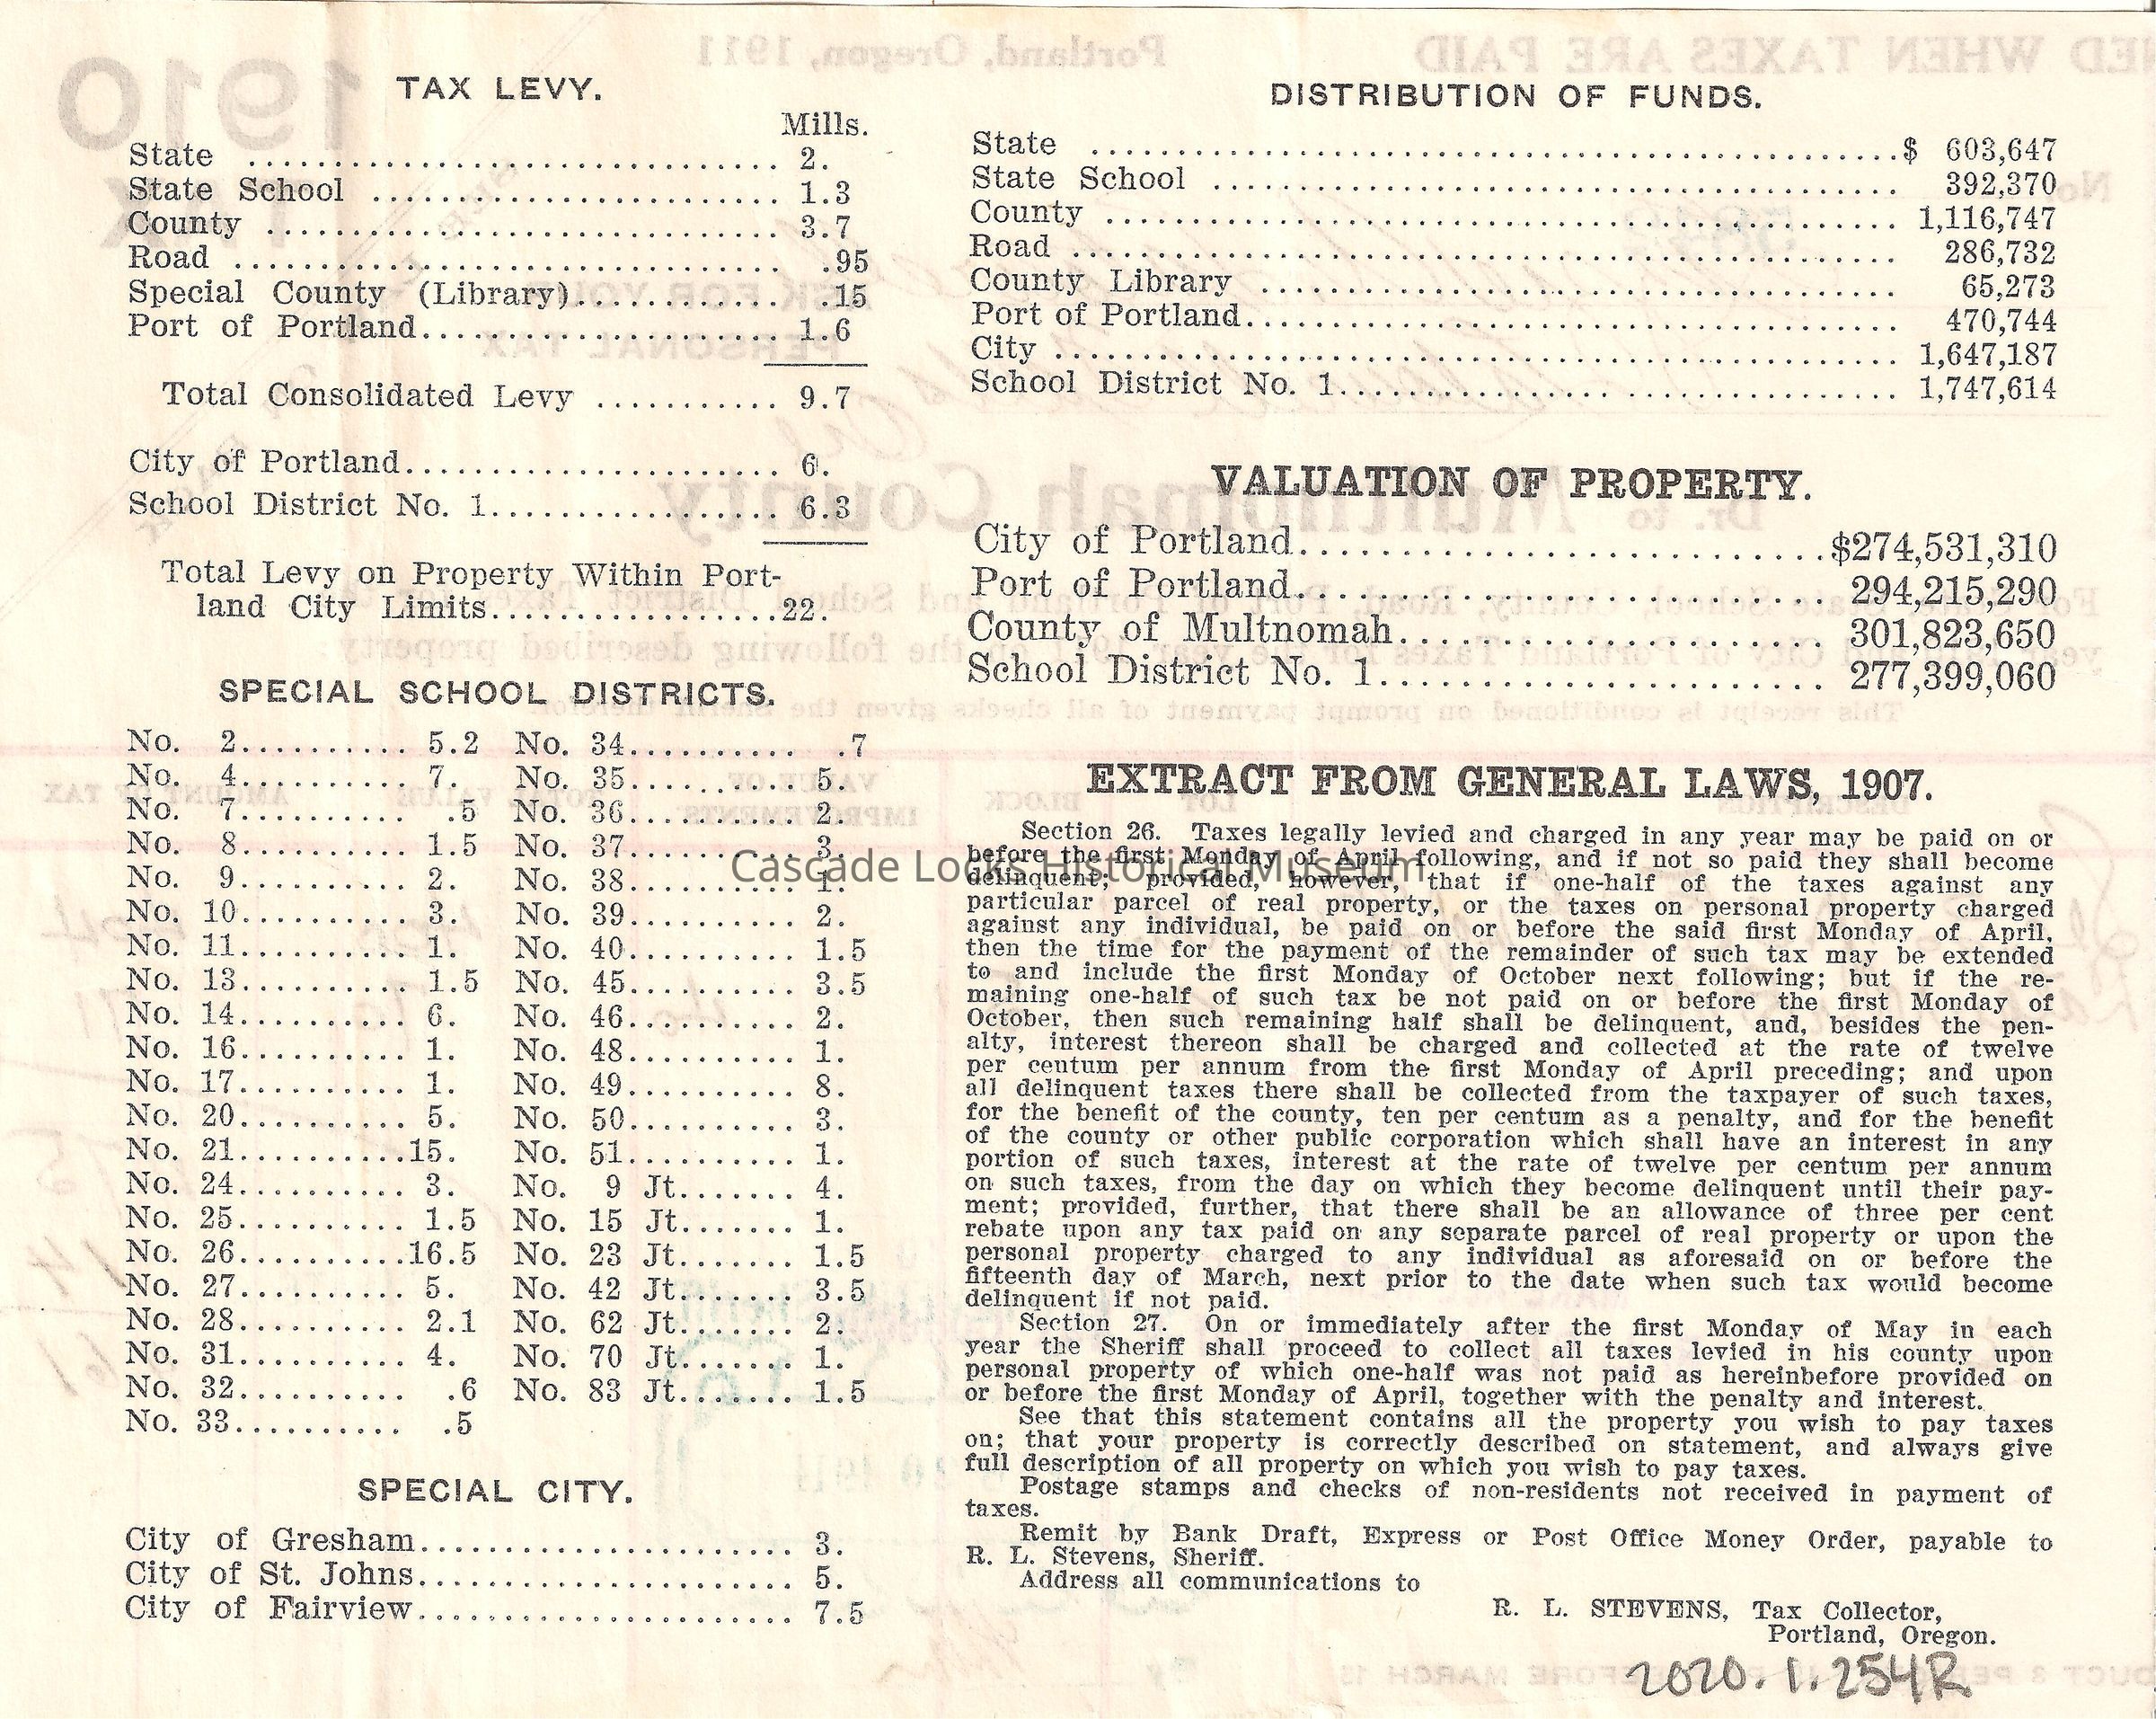 TAX LEVY.
Mills.
State ................................ 2.
State School ........................ 1.3
County ............................... 3.7
Road ................................. .95
Special County (Library)............ .15
Port of Portland..................... 1.6
Total Consolidated Levy ........... 9.7
City of Portland...................... 6.
School District No. 1................. 6.3
Total Levy on Property Within Port-
land City Limits.................22.
SPECIAL SCHOOL DISTRICTS.
No. 2.......... 5.2 No. 34.......... .7
No. 4.......... 7. No. 35.......... 5.
No. 7.......... .5 No. 36.......... 2.
No. 8.......... 1.5 No. 37.......... 3.
No. 9.......... 2. No. 38.......... 1.
No. 10.......... 3. No. 39.......... 2.
No. 11.......... 1. No. 40.......... 1.5
No. 13.......... 1.5 No. 45.......... 3.5
No. 14.......... 6. No. 46.......... 2.
No. 16.......... 1. No. 48.......... 1.
No. 17.......... 1. No. 49.......... 8.
No. 20.......... 5. No. 50.......... 3.
No. 21..........15. No. 51.......... 1.
No. 24.......... 3. No. 9 Jt....... 4.
No. 25.......... 1.5 No. 15 Jt....... 1.
No. 26..........16.5 No. 23 Jt....... 1.5
No. 27.......... 5. No. 42 Jt....... 3.5
No. 28.......... 2.1 No. 62 Jt....... 2.
No. 31.......... 4. No. 70 Jt....... 1.
No. 32.......... .6 No. 83 Jt....... 1.5
No. 33.......... .5
SPECIAL CITY.
City of Gresham....................... 3.
City of St. Johns....................... 5.
City of Fairview....................... 7.5
DISTRIBUTION OF FUNDS.
State ................................................$ 603,647
State School ......................................... 392,370
County ............................................... 1,116,747
Road ................................................. 286,732
County Library ...................................... 65,273
Port of Portland....................................... 470,744
City .................................................. 1,647,187
School District No. 1................................. 1,747,614
VALUATION OF PROPERTY.
City of Portland..........................$274,531,310
Port of Portland.......................... 294,215,290
County of Multnomah..................... 301,823,650
School District No. 1...................... 277,399,060
EXTRACT FROM GENERAL LAWS, 1907.
Section 26. Taxes legally levied and charged in any year may be paid on or
before the first Monday of April following, and if not so paid they shall become
delinquent; provided, however, that if one-half of the taxes against any
particular parcel of real property, or the taxes on personal property charged
against any individual, be paid on or before the said first Monday of April,
then the time for the payment of the remainder of such tax may be extended
to and include the first Monday of October next following; but if the re-
maining one-half of such tax be not paid on or before the first Monday of
October, then such remaining half shall be delinquent, and, besides the pen-
alty, interest thereon shall be charged and collected at the rate of twelve
per centum per annum from the first Monday of April preceding; and upon
all delinquent taxes there shall be collected from the taxpayer of such taxes,
for the benefit of the county, ten per centum as a penalty, and for the benefit
of the county or other public corporation which shall have an interest in any
portion of such taxes, interest at the rate of twelve per centum per annum
on such taxes, from the day on which they become delinquent until their pay-
ment; provided, further, that there shall be an allowance of three per cent
rebate upon any tax paid on any separate parcel of real property or upon the
personal property charged to any individual as aforesaid on or before the
fifteenth day of March, next prior to the date when such tax would become
delinquent if not paid.
Section 27. On or immediately after the first Monday of May in each
year the Sheriff shall proceed to collect all taxes levied in his county upon
personal property of which one-half was not paid as hereinbefore provided on
or before the first Monday of April, together with the penalty and interest.
See that this statement contains all the property you wish to pay taxes
on; that your property is correctly described on statement, and always give
full description of all property on which you wish to pay taxes.
Postage stamps and checks of non-residents not received in payment of
taxes.
Remit by Bank Draft, Express or Post Office Money Order, payable to
R. L. Stevens, Sheriff.
Address all communications to
R. L. STEVENS, Tax Collector,
Portland, Oregon.
2020.1.254R
Cascade Locks Historical Museum